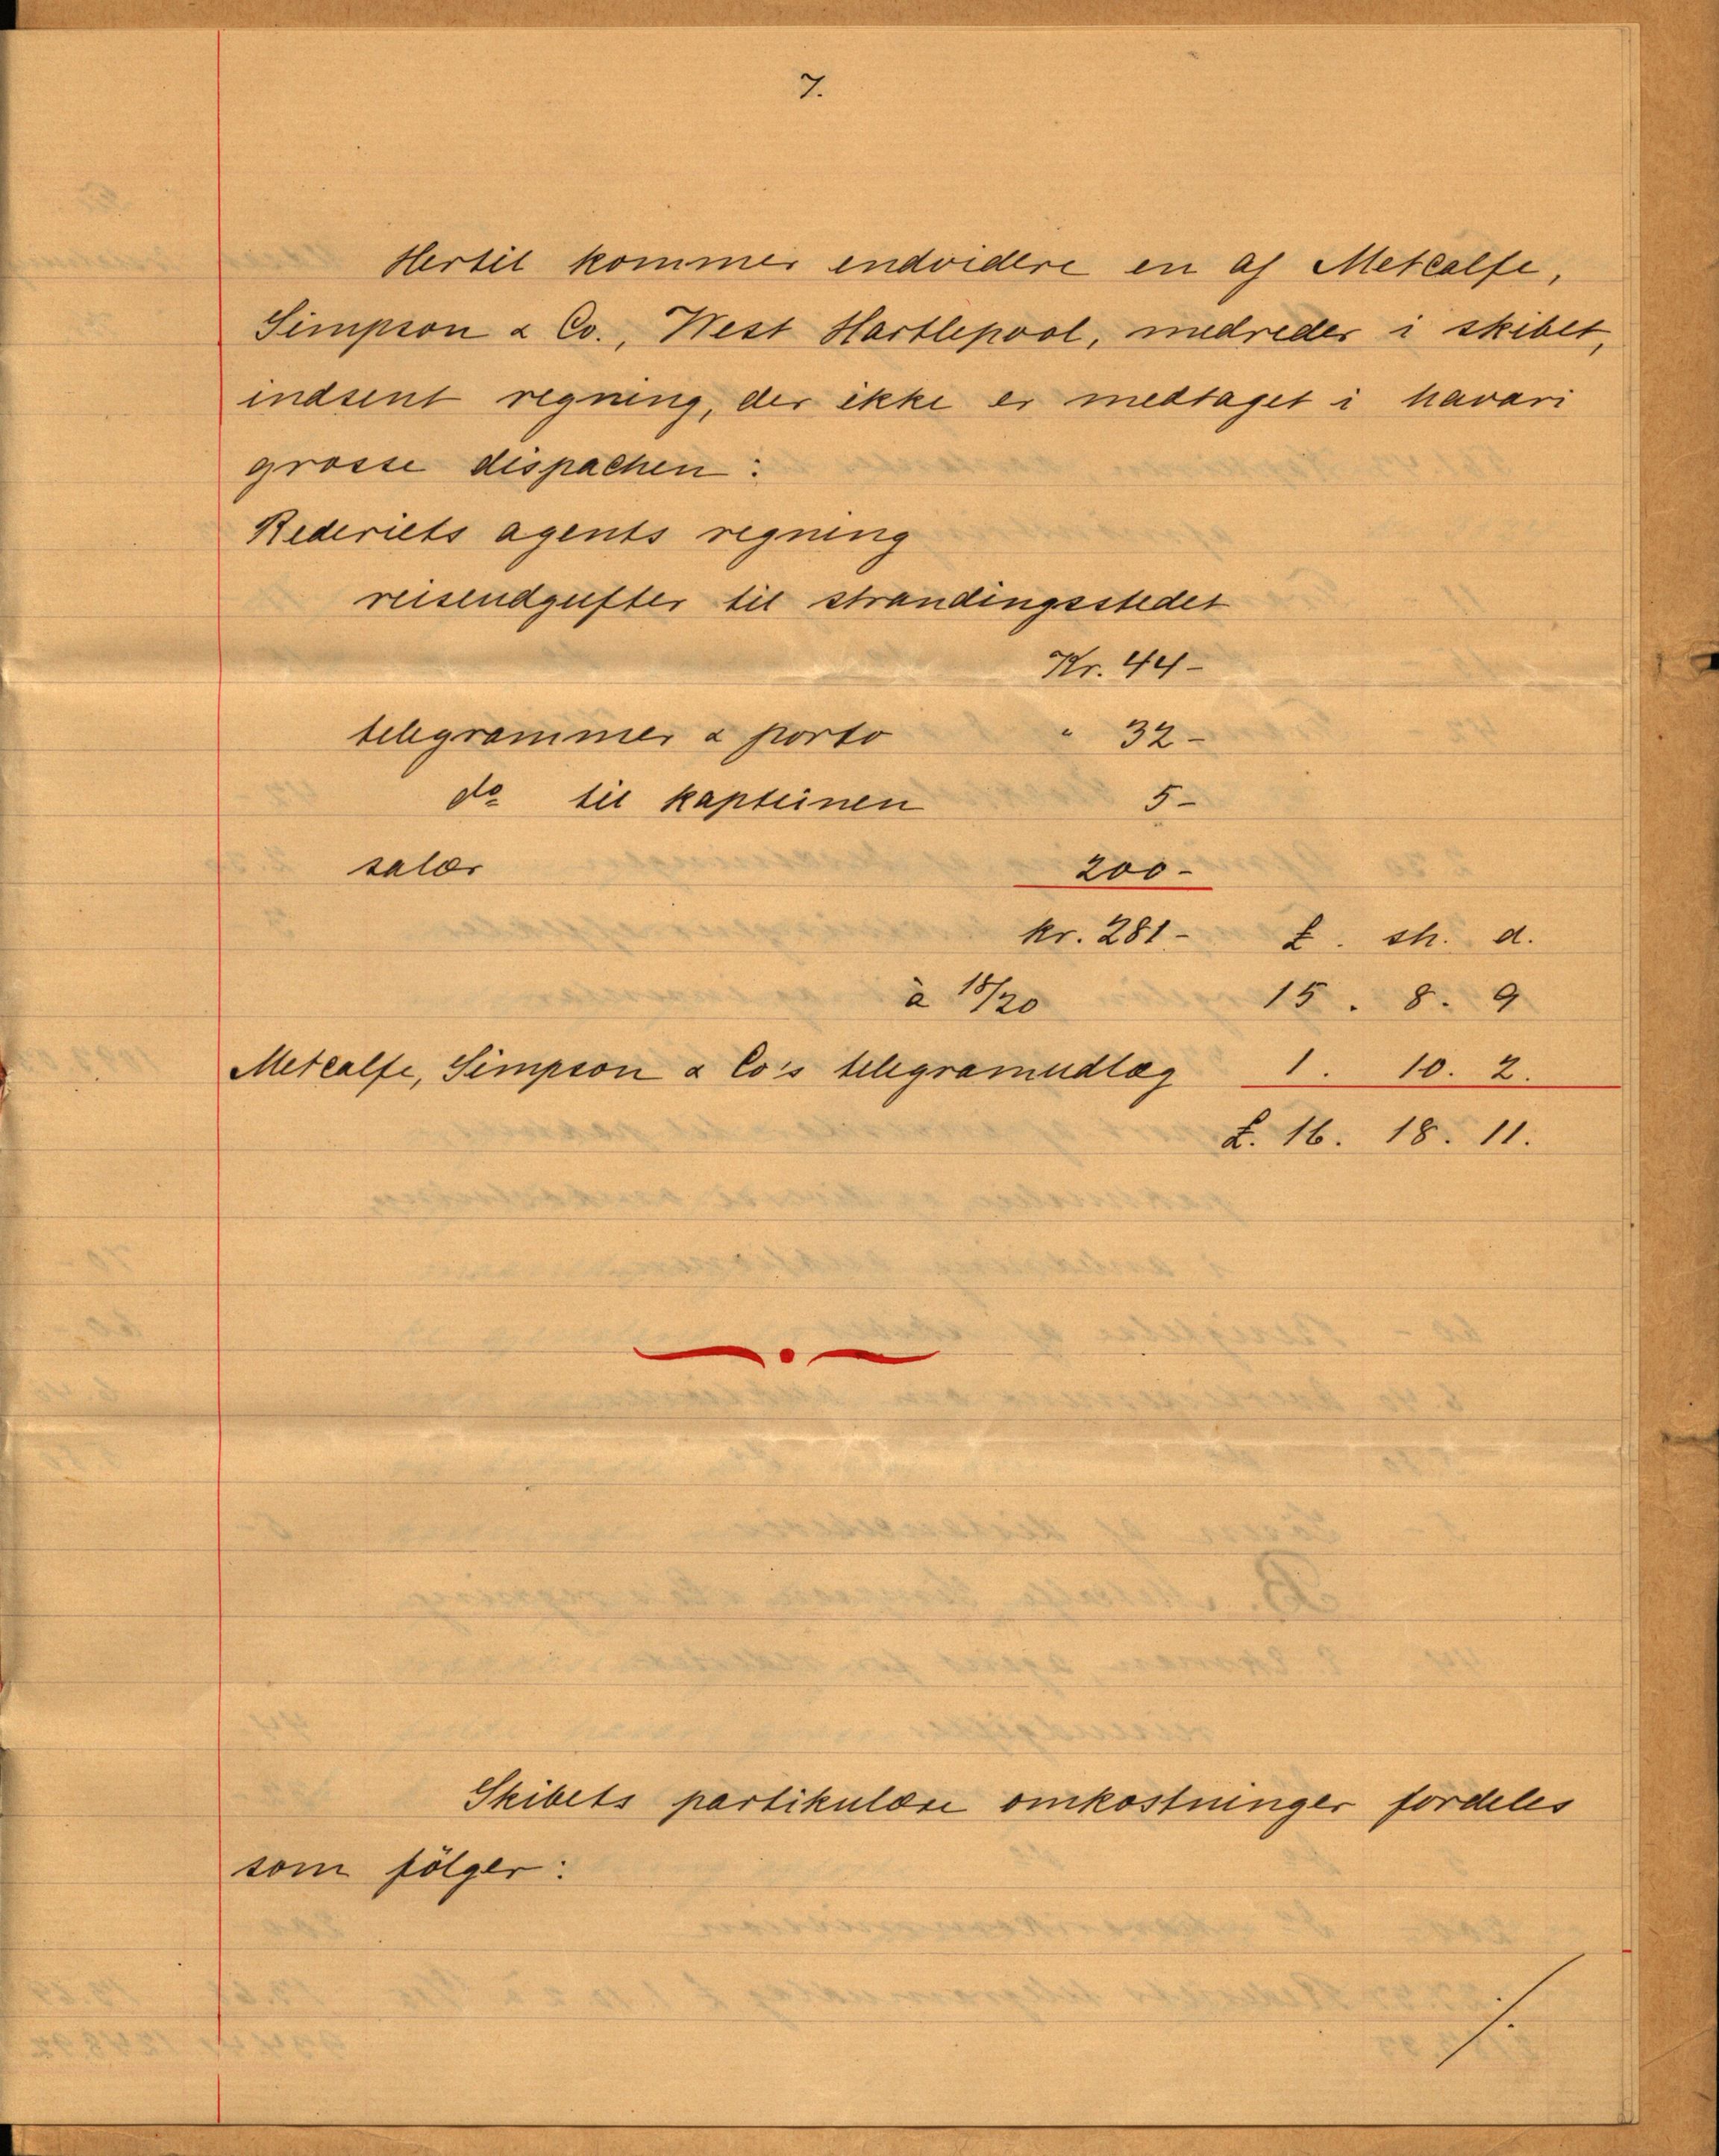 7.
Hertil kommer endvidere en af Metcalfe,
Simpson & Co., West Hartlepool, medreder i skibet,
indsent regning, der ikke er medtaget i havari
grosse dispachen:
Rederiets agents regning
reiseudgifter til strandingsstedet
Kr. 44-
telegrammer & porto " 32-
do til kapteinen 5-
salær 200-
kr. 281- £. sh. d.
à 18/20 15. 8. 9
Metcalfe, Simpson & Co's telegramudlæg 1. 10. 2.
£. 16. 18. 11.
Skibets partikulære omkostninger fordeles
som følger:
/.